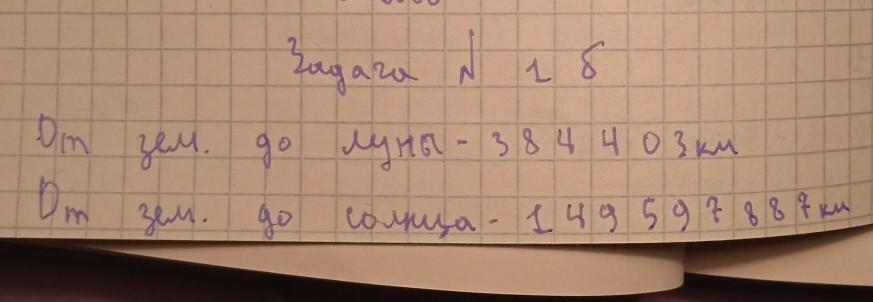 Задача N 1 б
От зем. до луны - 384 403 км
От зем. до солнца - 149 597 887 км